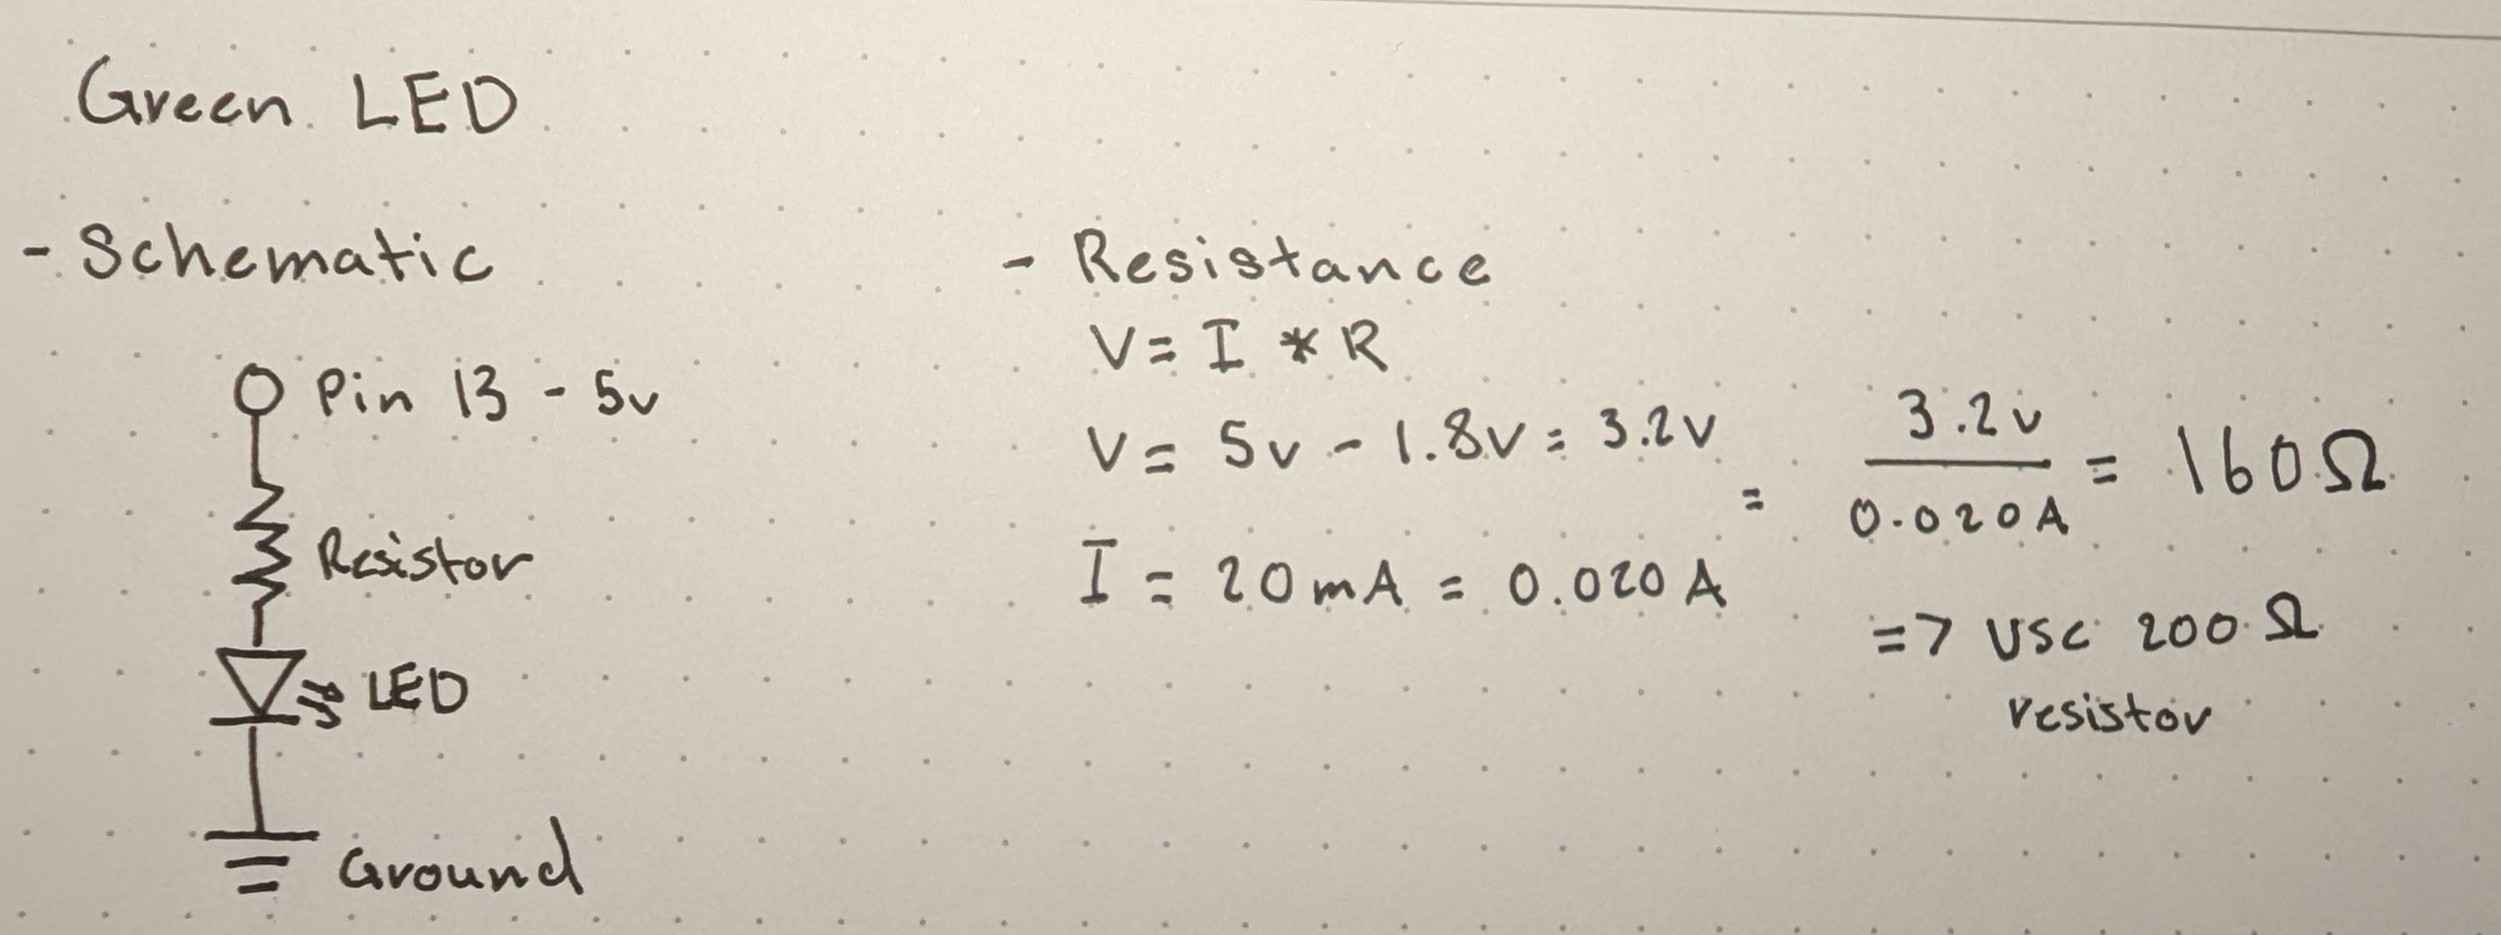 Green LED
- Schematic
Pin 13 - 5v
Resistor
LED
Ground
- Resistance
V = I * R
V = 5v - 1.8v = 3.2v
I = 20mA = 0.020A
= 3.2v / 0.020A = 160Ω
=> Use 200 Ω
resistor